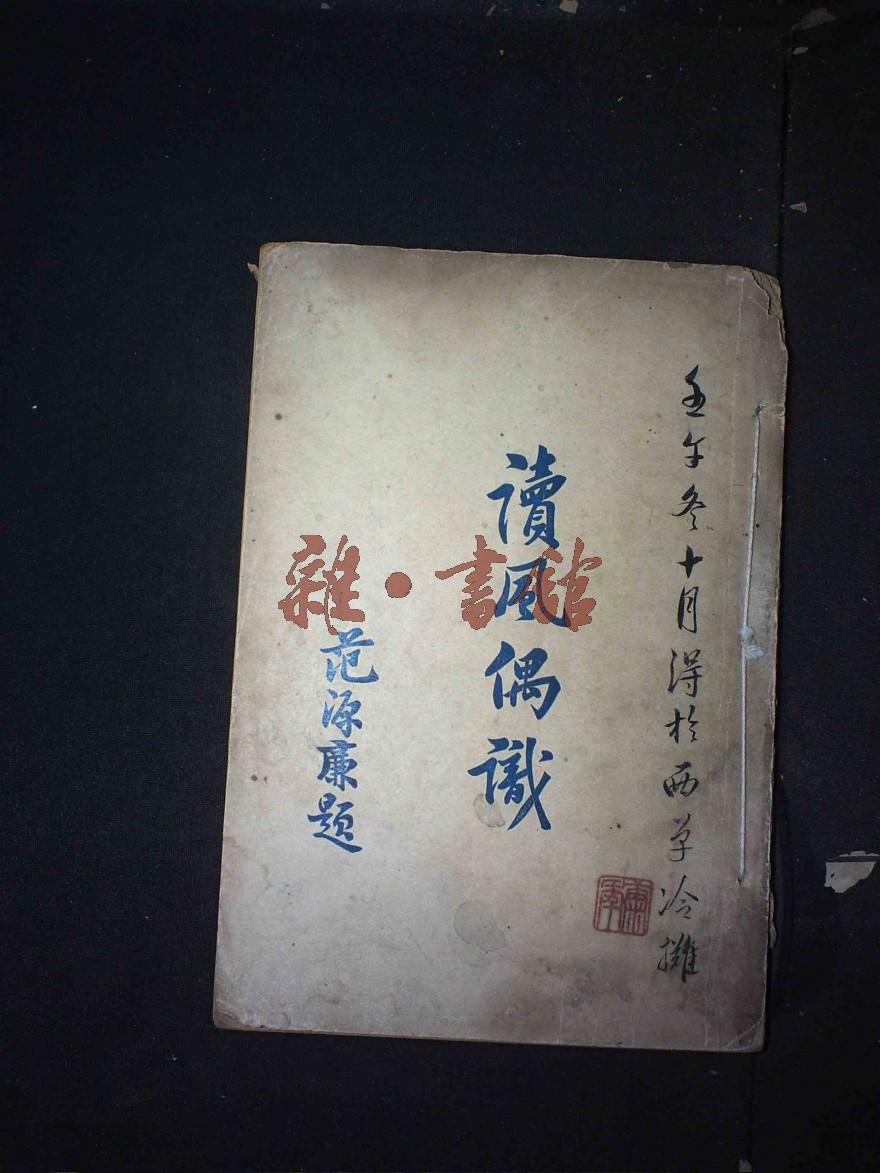 壬午冬十月得於西單冷攤
讀風偶識
范源廉題
雜·書館